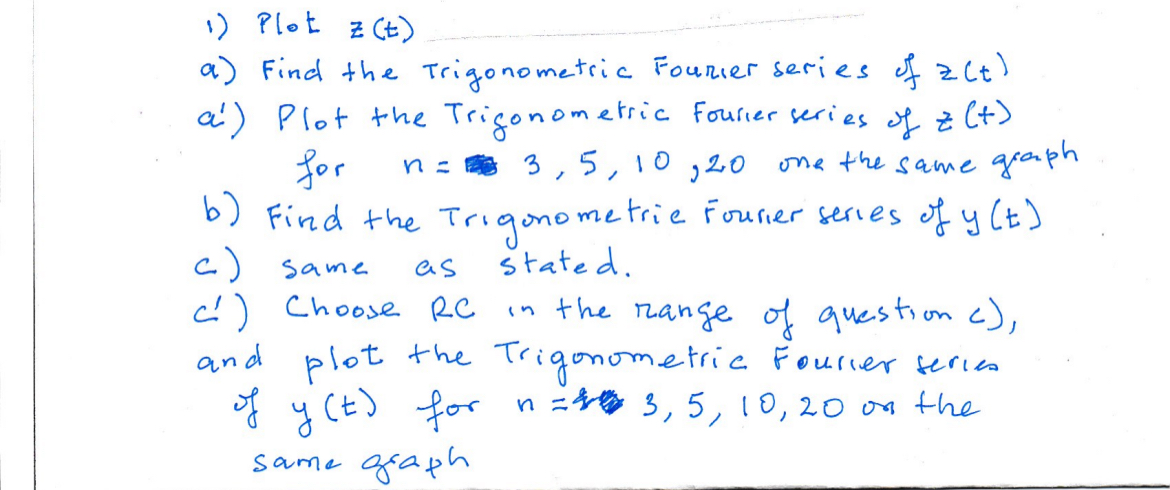 1) Plot z(t)
a) Find the Trigonometric Fourier series of z(t)
a') Plot the Trigonometric Fourier series of z(t)
for n = 3, 5, 10, 20 one the same graph
b) Find the Trigonometric Fourier series of y(t)
c) same as stated.
c') Choose RC in the range of question c),
and plot the Trigonometric Fourier series
of y(t) for n = 3, 5, 10, 20 on the
same graph